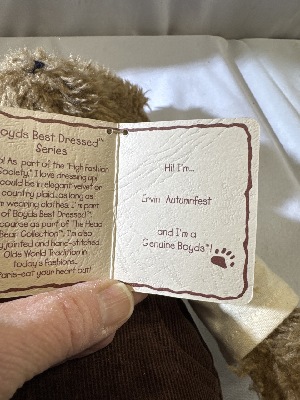 Boyds Best Dressed™
Series
As part of the "High Fashion
Society," I love dressing up!
could be in elegant velvet or
country plaid...as long as
I'm wearing clothes I'm part
of Boyds Best Dressed™!
course as part of The Head
Bear Collection™, I'm also
jointed and hand-stitched
Olde World Tradition in
today's fashions...
Paris-eat your heart out!
Hi! I'm...
Irvin Autumnfest
and I'm a
Genuine Boyds™!